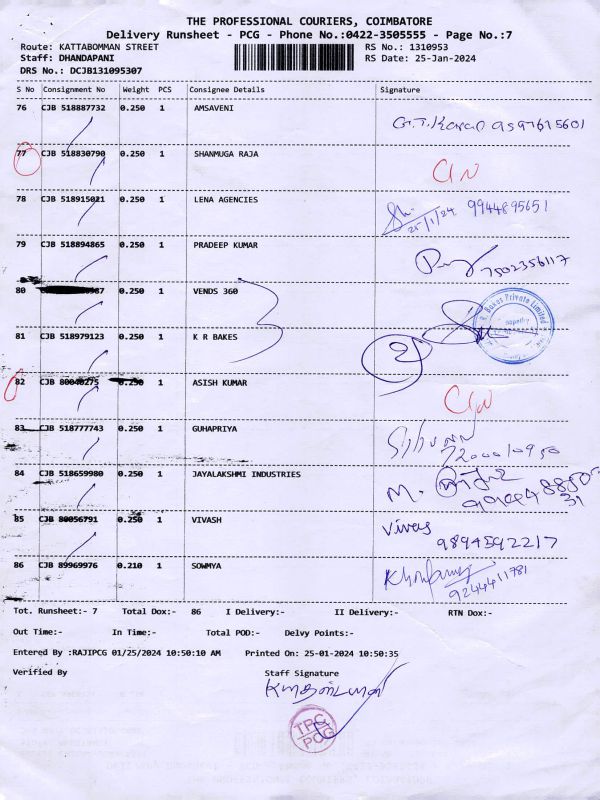 THE PROFESSIONAL COURIERS, COIMBATORE
Delivery Runsheet - PCG - Phone No.:0422-3505555 - Page No.:7
Route: KATTABOMMAN STREET RS No.: 1310953
Staff: DHANDAPANI RS Date: 25-Jan-2024
DRS No.: DCJB131095307
S No Consignment No Weight PCS Consignee Details Signature
76 CJB 518887732 0.250 1 AMSAVENI
77 CJB 518830790 0.250 1 SHANMUGA RAJA
78 CJB 518915021 0.250 1 LENA AGENCIES 25/1/24 9944895651
79 CJB 518894865 0.250 1 PRADEEP KUMAR 7502356117
80 0.250 1 VENDS 360
81 CJB 518979123 0.250 1 K R BAKES 2
82 CJB 80040275 0.250 1 ASISH KUMAR
83 CJB 518777743 0.250 1 GUHAPRIYA
84 CJB 518659980 0.250 1 JAYALAKSHMI INDUSTRIES M.
85 CJB 80056791 0.250 1 VIVASH 9894592217
86 CJB 89969976 0.210 1 SOWMYA 9244411781
Tot. Runsheet:- 7 Total Dox:- 86 I Delivery:- II Delivery:- RTN Dox:-
Out Time:- In Time:- Total POD:- Delvy Points:-
Entered By :RAJIPCG 01/25/2024 10:50:10 AM Printed On: 25-01-2024 10:50:35
Verified By Staff Signature
TPC
PCG